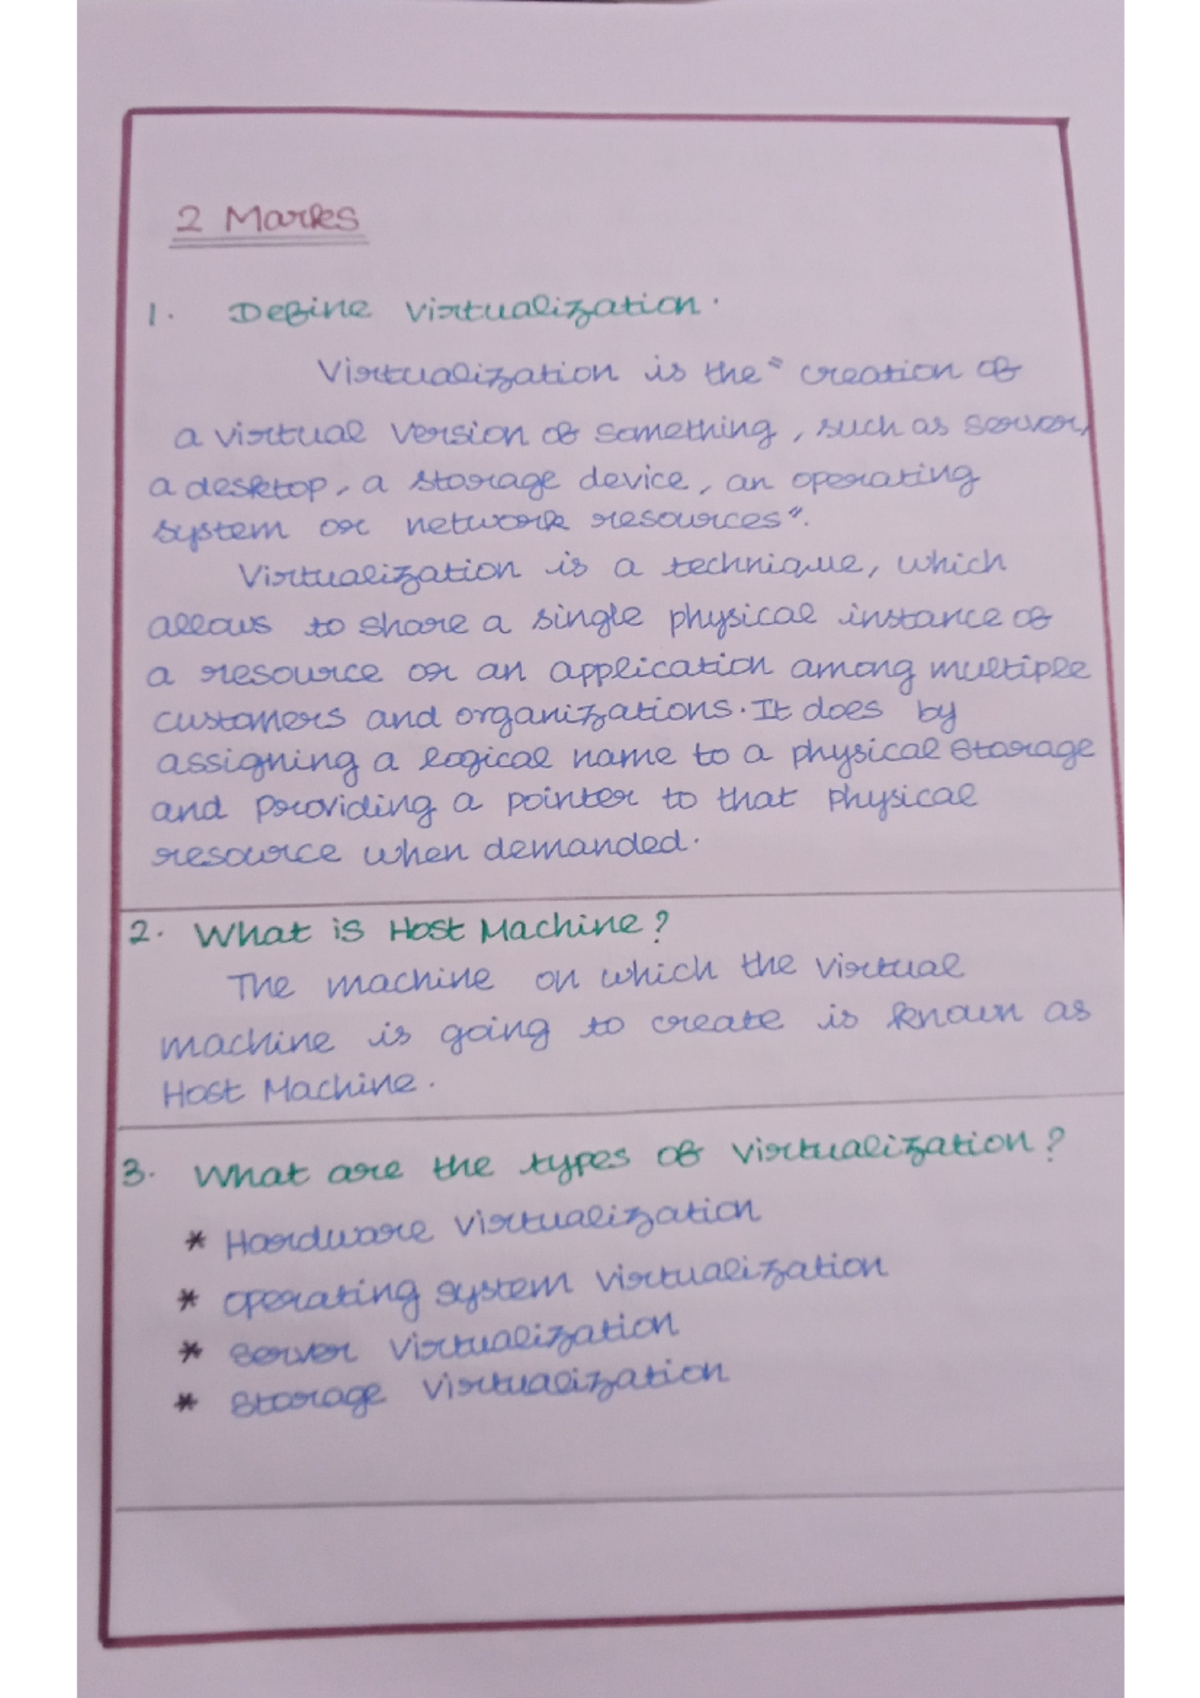 2 Marks
1. Define Virtualization.
Virtualization is the "creation of
a virtual version of something, such as server,
a desktop, a storage device, an operating
system or network resources".
Virtualization is a technique, which
allows to share a single physical instance of
a resource or an application among multiple
customers and organizations. It does by
assigning a logical name to a physical storage
and providing a pointer to that physical
resource when demanded.
2. What is Host Machine?
The machine on which the virtual
machine is going to create is known as
Host Machine.
3. What are the types of virtualization?
* Hardware Virtualization
* operating system virtualization
* Server Virtualization
* Storage Virtualization